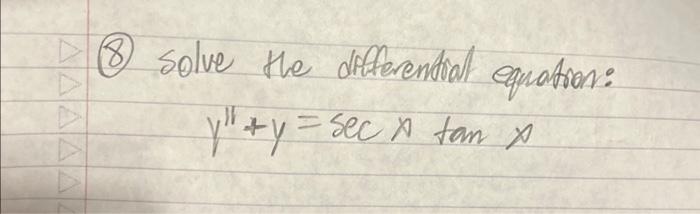 ⑧ solve the differential equation:
y" + y = sec x tan x